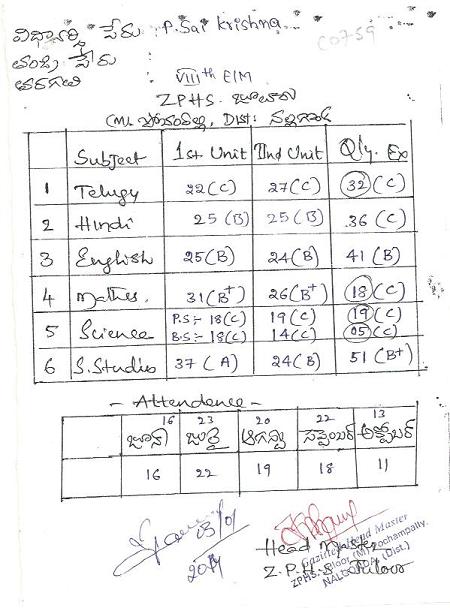 విద్యార్థి పేరు : P. Sai Krishna
C0759
తండ్రి పేరు
తరగతి : VIIIth E/M
Z.P.H.S. జూలూరు
Dist: నల్లగొండ
Subject 1st Unit IInd Unit Qly. Ex
1 Telugu 22(C) 27(C) 32(C)
2 Hindi 25(B) 25(B) 36(C)
3 English 25(B) 24(B) 41(B)
4 Mathes. 31(B+) 26(B+) 18(C)
5 Science P.S:- 18(C) 19(C) 19(C)
B.S:- 18(C) 14(C) 05(C)
6 S. Studies 37(A) 24(B) 51(B+)
- Attendence -
16 23 20 22 13
జూన్ జులై ఆగస్టు సెప్టెంబర్ అక్టోబర్
16 22 19 18 11
03/01
Head Master
Gazitted Head Master
Z.P.H.S. Juloor
ZPHS. Juloor (M) Pochampally.
NALGONDA (Dist.)